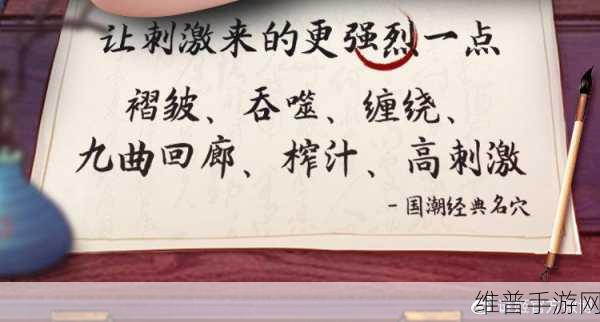 让刺激来的更强烈一点
褶皱、吞噬、缠绕、
九曲回廊、榨汁、高刺激
-国潮经典名穴
维普手游网